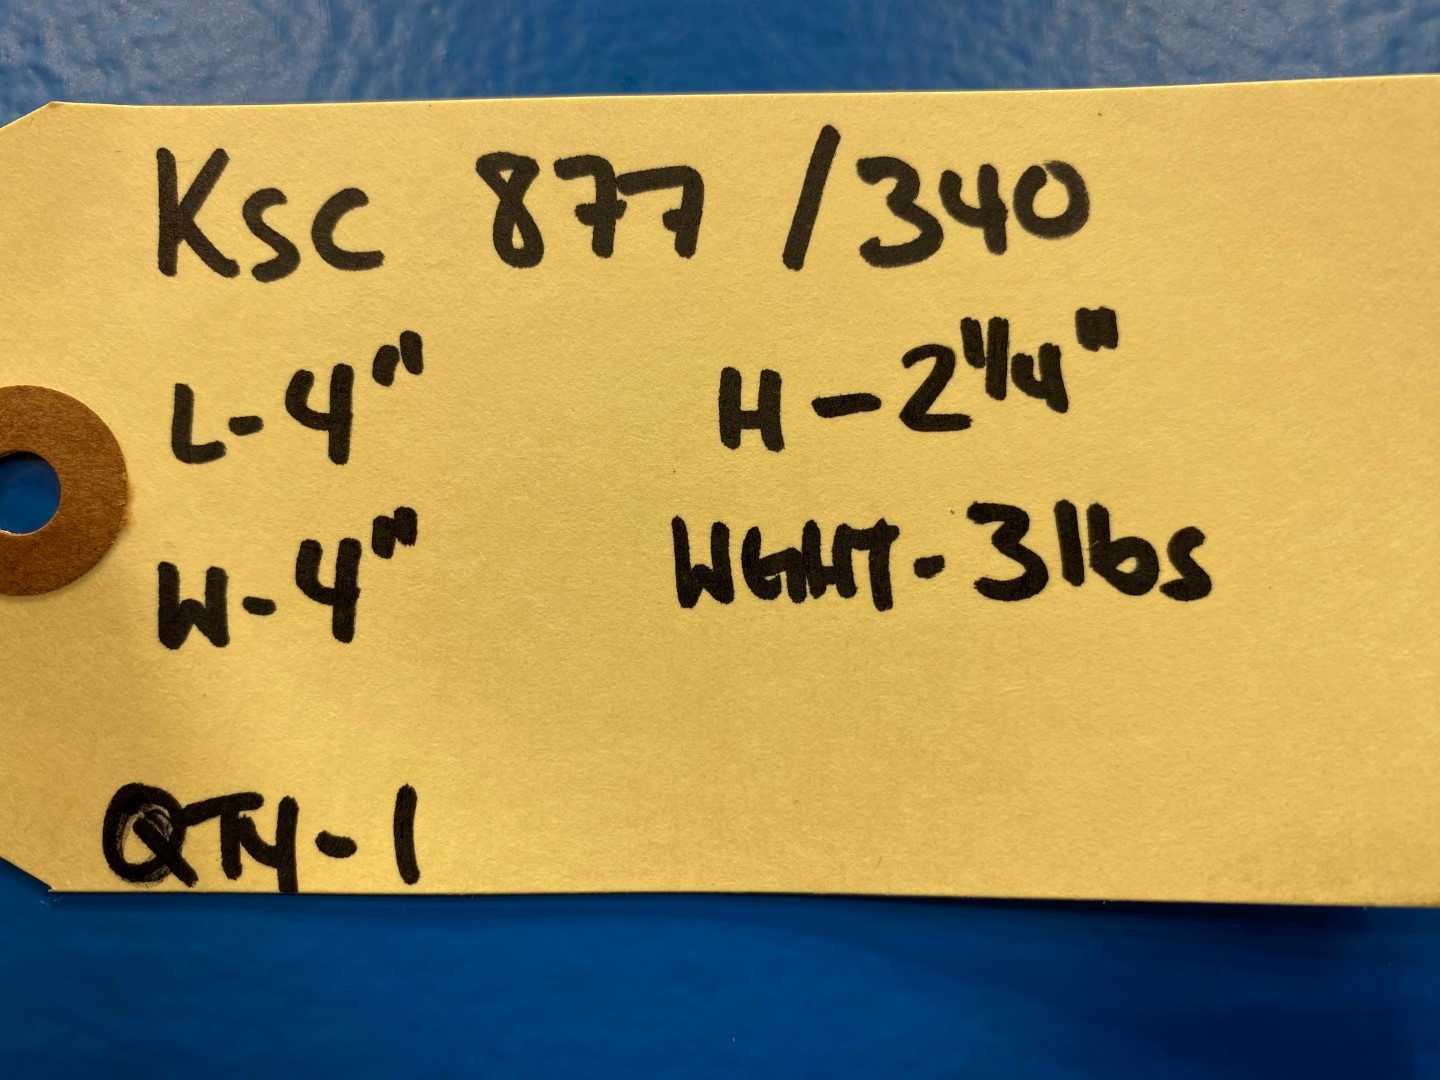 KSC 877 /340
L-4" H-2 1/4"
W-4" WGHT-3lbs
QTY-1